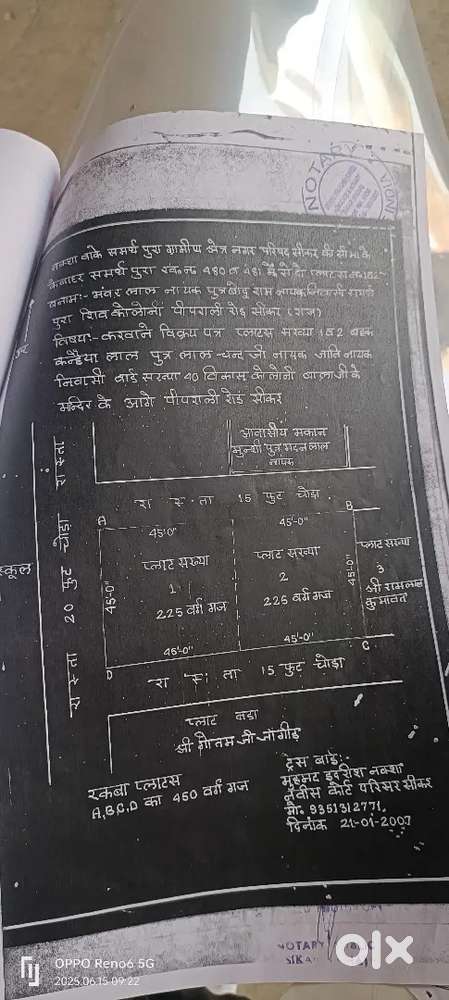 NOTARY
नक्शा बाके समर्थ पुरा ग्रामीण क्षेत्र नगर परिषद सीकर की सीमा के
बाहर समर्थ पुरा खसरा 480 व 481 में से दो प्लाट संख्या 1व2-
बनाम:- भंवर लाल नायक पुत्र राम नायक निवासी समर्थ
पुरा शिव कोलोनी पीपराली रोड़ सीकर (राज)
विषय:- करवाने विक्रय पत्र प्लाटस संख्या 1व2 बहक
कन्हैया लाल पुत्र लाल चन्द जी नायक जाति नायक
निवासी वार्ड संख्या 40 विकास कोलोनी बालाजी के
मन्दिर के आगे पीपराली रोड सीकर
आवासीय मकान
मुन्शी पुत्र मदन लाल
नायक
रास्ता 15 फुट चोड़ा
रास्ता 20 फुट चोड़ा रास्ता
स्कूल
A
B
45'-0"
45'-0"
45'-0"
45'-0"
प्लाट संख्या
1
225 वर्ग गज
प्लाट संख्या
2
225 वर्ग गज
प्लाट संख्या
3
श्री रामलाल
कुमावत
45'-0"
45'-0"
D
C
रास्ता 15 फुट चोड़ा
प्लाट बाडा
श्री गौतम जी जांगीड़
रकबा प्लाटस
A,B,C,D का 450 वर्ग गज
ट्रेस बाई:-
मुहम्मद इदरीश नक्शा
नवीस कोर्ट परिसर सीकर
मो. 9351312771,
दिनांक 21-01-2007
NOTARY
SIKA
olx
OPPO Reno6 5G
2025.06.15 09:22